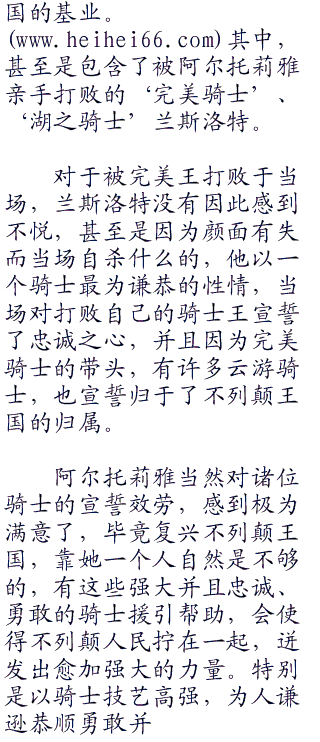 国的基业。
(www.heihei66.com)其中，
甚至是包含了被阿尔托莉雅
亲手打败的‘完美骑士’、
‘湖之骑士’兰斯洛特。
对于被完美王打败于当
场，兰斯洛特没有因此感到
不悦，甚至是因为颜面有失
而当场自杀什么的，他以一
个骑士最为谦恭的性情，当
场对打败自己的骑士王宣誓
了忠诚之心，并且因为完美
骑士的带头，有许多云游骑
士，也宣誓归于了不列颠王
国的归属。
阿尔托莉雅当然对诸位
骑士的宣誓效劳，感到极为
满意了，毕竟复兴不列颠王
国，靠她一个人自然是不够
的，有这些强大并且忠诚、
勇敢的骑士援引帮助，会使
得不列颠人民拧在一起，迸
发出愈加强大的力量。特别
是以骑士技艺高强，为人谦
逊恭顺勇敢并